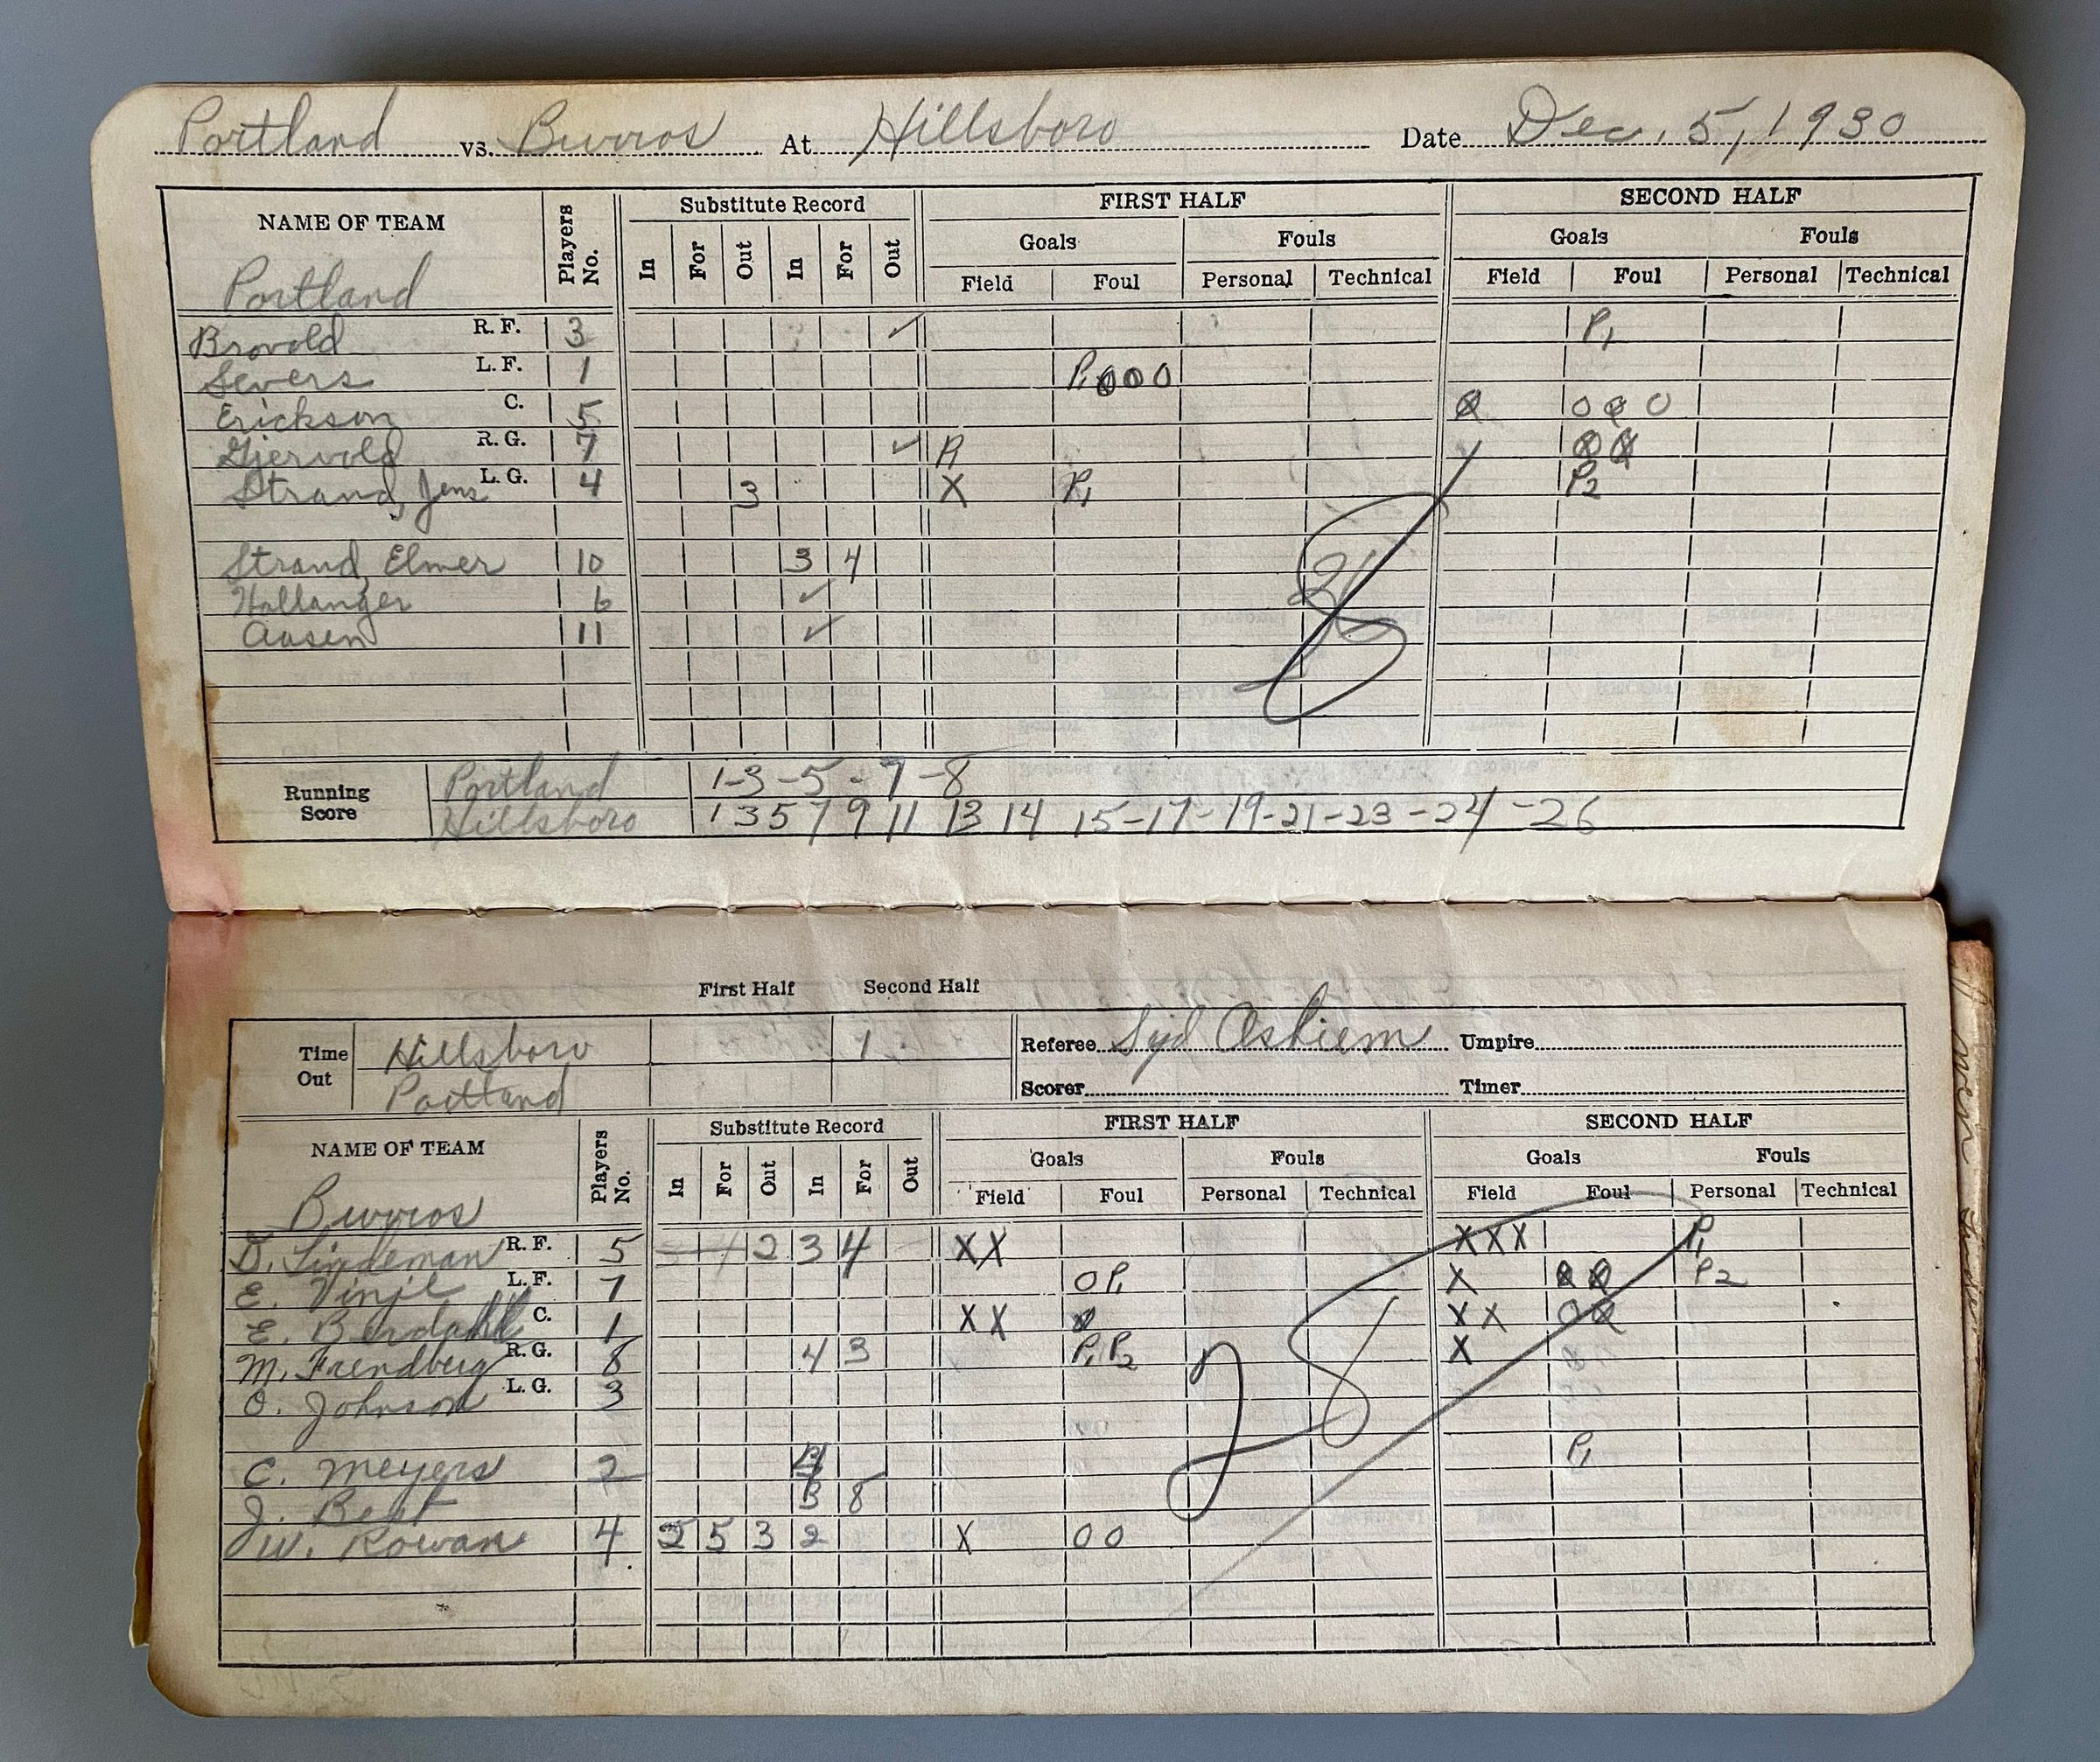 Portland vs. Burros At Hillsboro Date Dec. 5, 1930
NAME OF TEAM Players No. Substitute Record FIRST HALF SECOND HALF
Goals Fouls Goals Fouls
In For Out In For Out Field Foul Personal Technical Field Foul Personal Technical
Portland
Brovold R. F. 3 ✓ P1
Severs L. F. 1 P1 0 0 0
Erickson C. 5 0 0 0
Gjervold R. G. 7 ✓ 0 0
Strand, Jens L. G. 4 3 X P1 P2
Strand, Elmer 10 3 4
Hollanger 6 ✓
Aasen 11 ✓
8
Running Score Portland 1-3-5-7-8
Hillsboro 1 3 5 7 9 11 13 14 15-17-19-21-23-24-26
First Half Second Half
Time Out Hillsboro 1 Referee Syd Askiem Umpire
Portland Scorer Timer
NAME OF TEAM Players No. Substitute Record FIRST HALF SECOND HALF
Goals Fouls Goals Fouls
In For Out In For Out Field Foul Personal Technical Field Foul Personal Technical
Burros
D. Lindeman R. F. 5 2 3 4 XX XXX P1
E. Vinje L. F. 7 0 P1 X 0 0 P2
E. Berdahl C. 1 XX 0 XX 0 0
M. Frendberg R. G. 8 4 3 P1 P2 X
O. Johnson L. G. 3
C. Meyers 2 P1
J. 3 8
W. Rowan 4 2 5 3 2 X 0 0
28